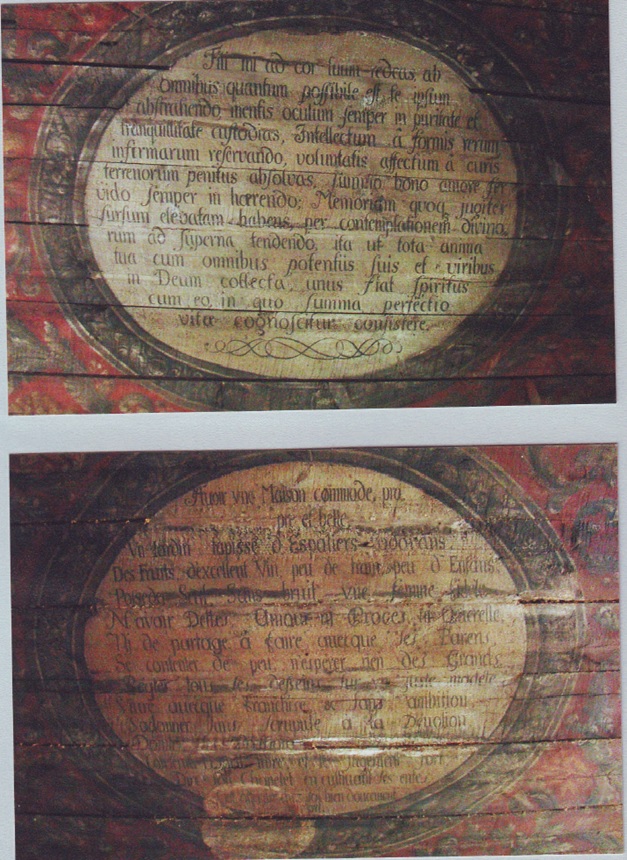 Fili mi ad cor tuum redeas, ab
omnibus quantum possibile est, te ipsum
abstrahendo, mentis oculum semper in puritate et
tranquillitate custodias, Intellectum á formis rerum
infirmarum reservando, voluntatis affectum á curis
terrenorum penitus absolvas, summo bono amore fer
vido semper in hærendo; Memoriam quoq jugiter
sursum elevatam habens, per contemplationem divino,
rum ad superna tendendo, ita ut tota anima
tua cum omnibus potentiis suis et viribus
in Deum collecta, unus fiat spiritus
cum eo, in quo summa perfectio
vitæ cognoscitur consistere.
Auoir vne Maison cõmode, pro
pre et belle,
Vn Iardin tapissé d'Espaliers odorans,
Des Fruits, d'excellent Vin, peu de train, peu d'Enfans
Posseder Seul, Sans bruit, vne femme fidele
N'avoir Dettes, Amour, ni Proces, ni Querelle,
Ni de partage à faire auecque Ses Parens,
Se contenter de peu, n'esperer rien des Grands,
Regler tous ses desseins sur vn juste modele,
Viure auecque franchise et sans ambition
S'adonner sans scrupule a la Devotion
Domter Ses Passions
Conserver l'esprit libre, et le jugement fort,
Dire son Chapelet en cultiuant ses entes,